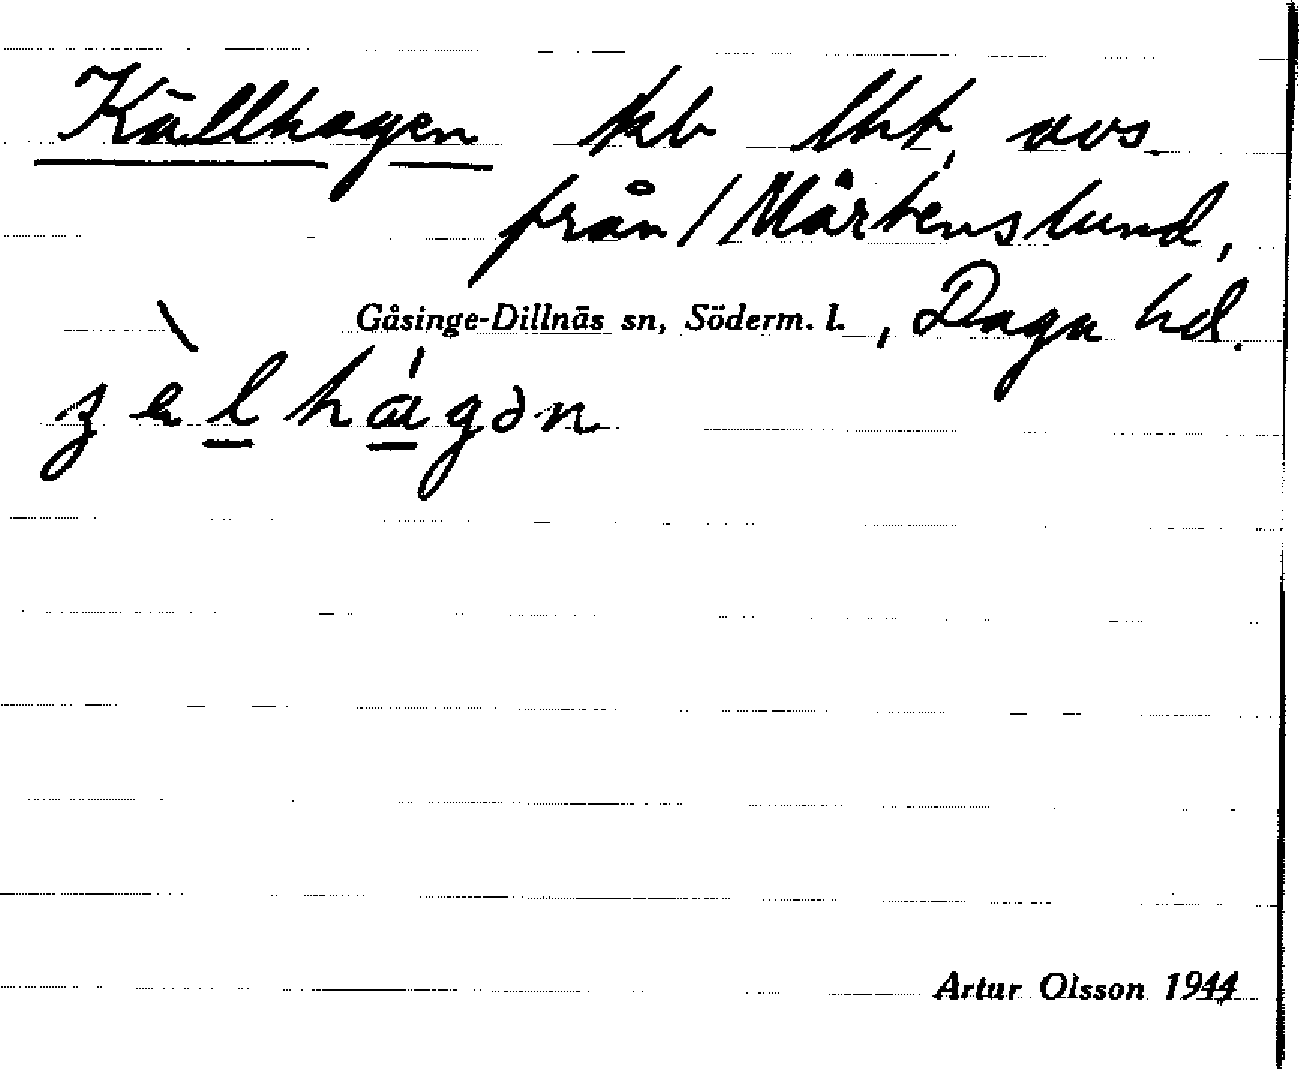 Källhagen hb lht, avs.
från / Mårtenslund,
Gåsinge-Dillnäs sn, Söderm. l., Daga hd.
Artur Olsson 1944